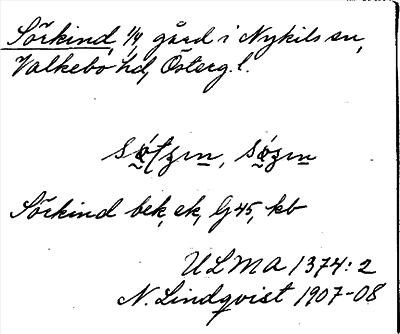 Sörkind, 1/4, gård i Nykils sn,
Valkebo hd, Österg. l.
Sörkind bek, ek, G 45, kb
ULMA 1374:2
N. Lindqvist 1907-08